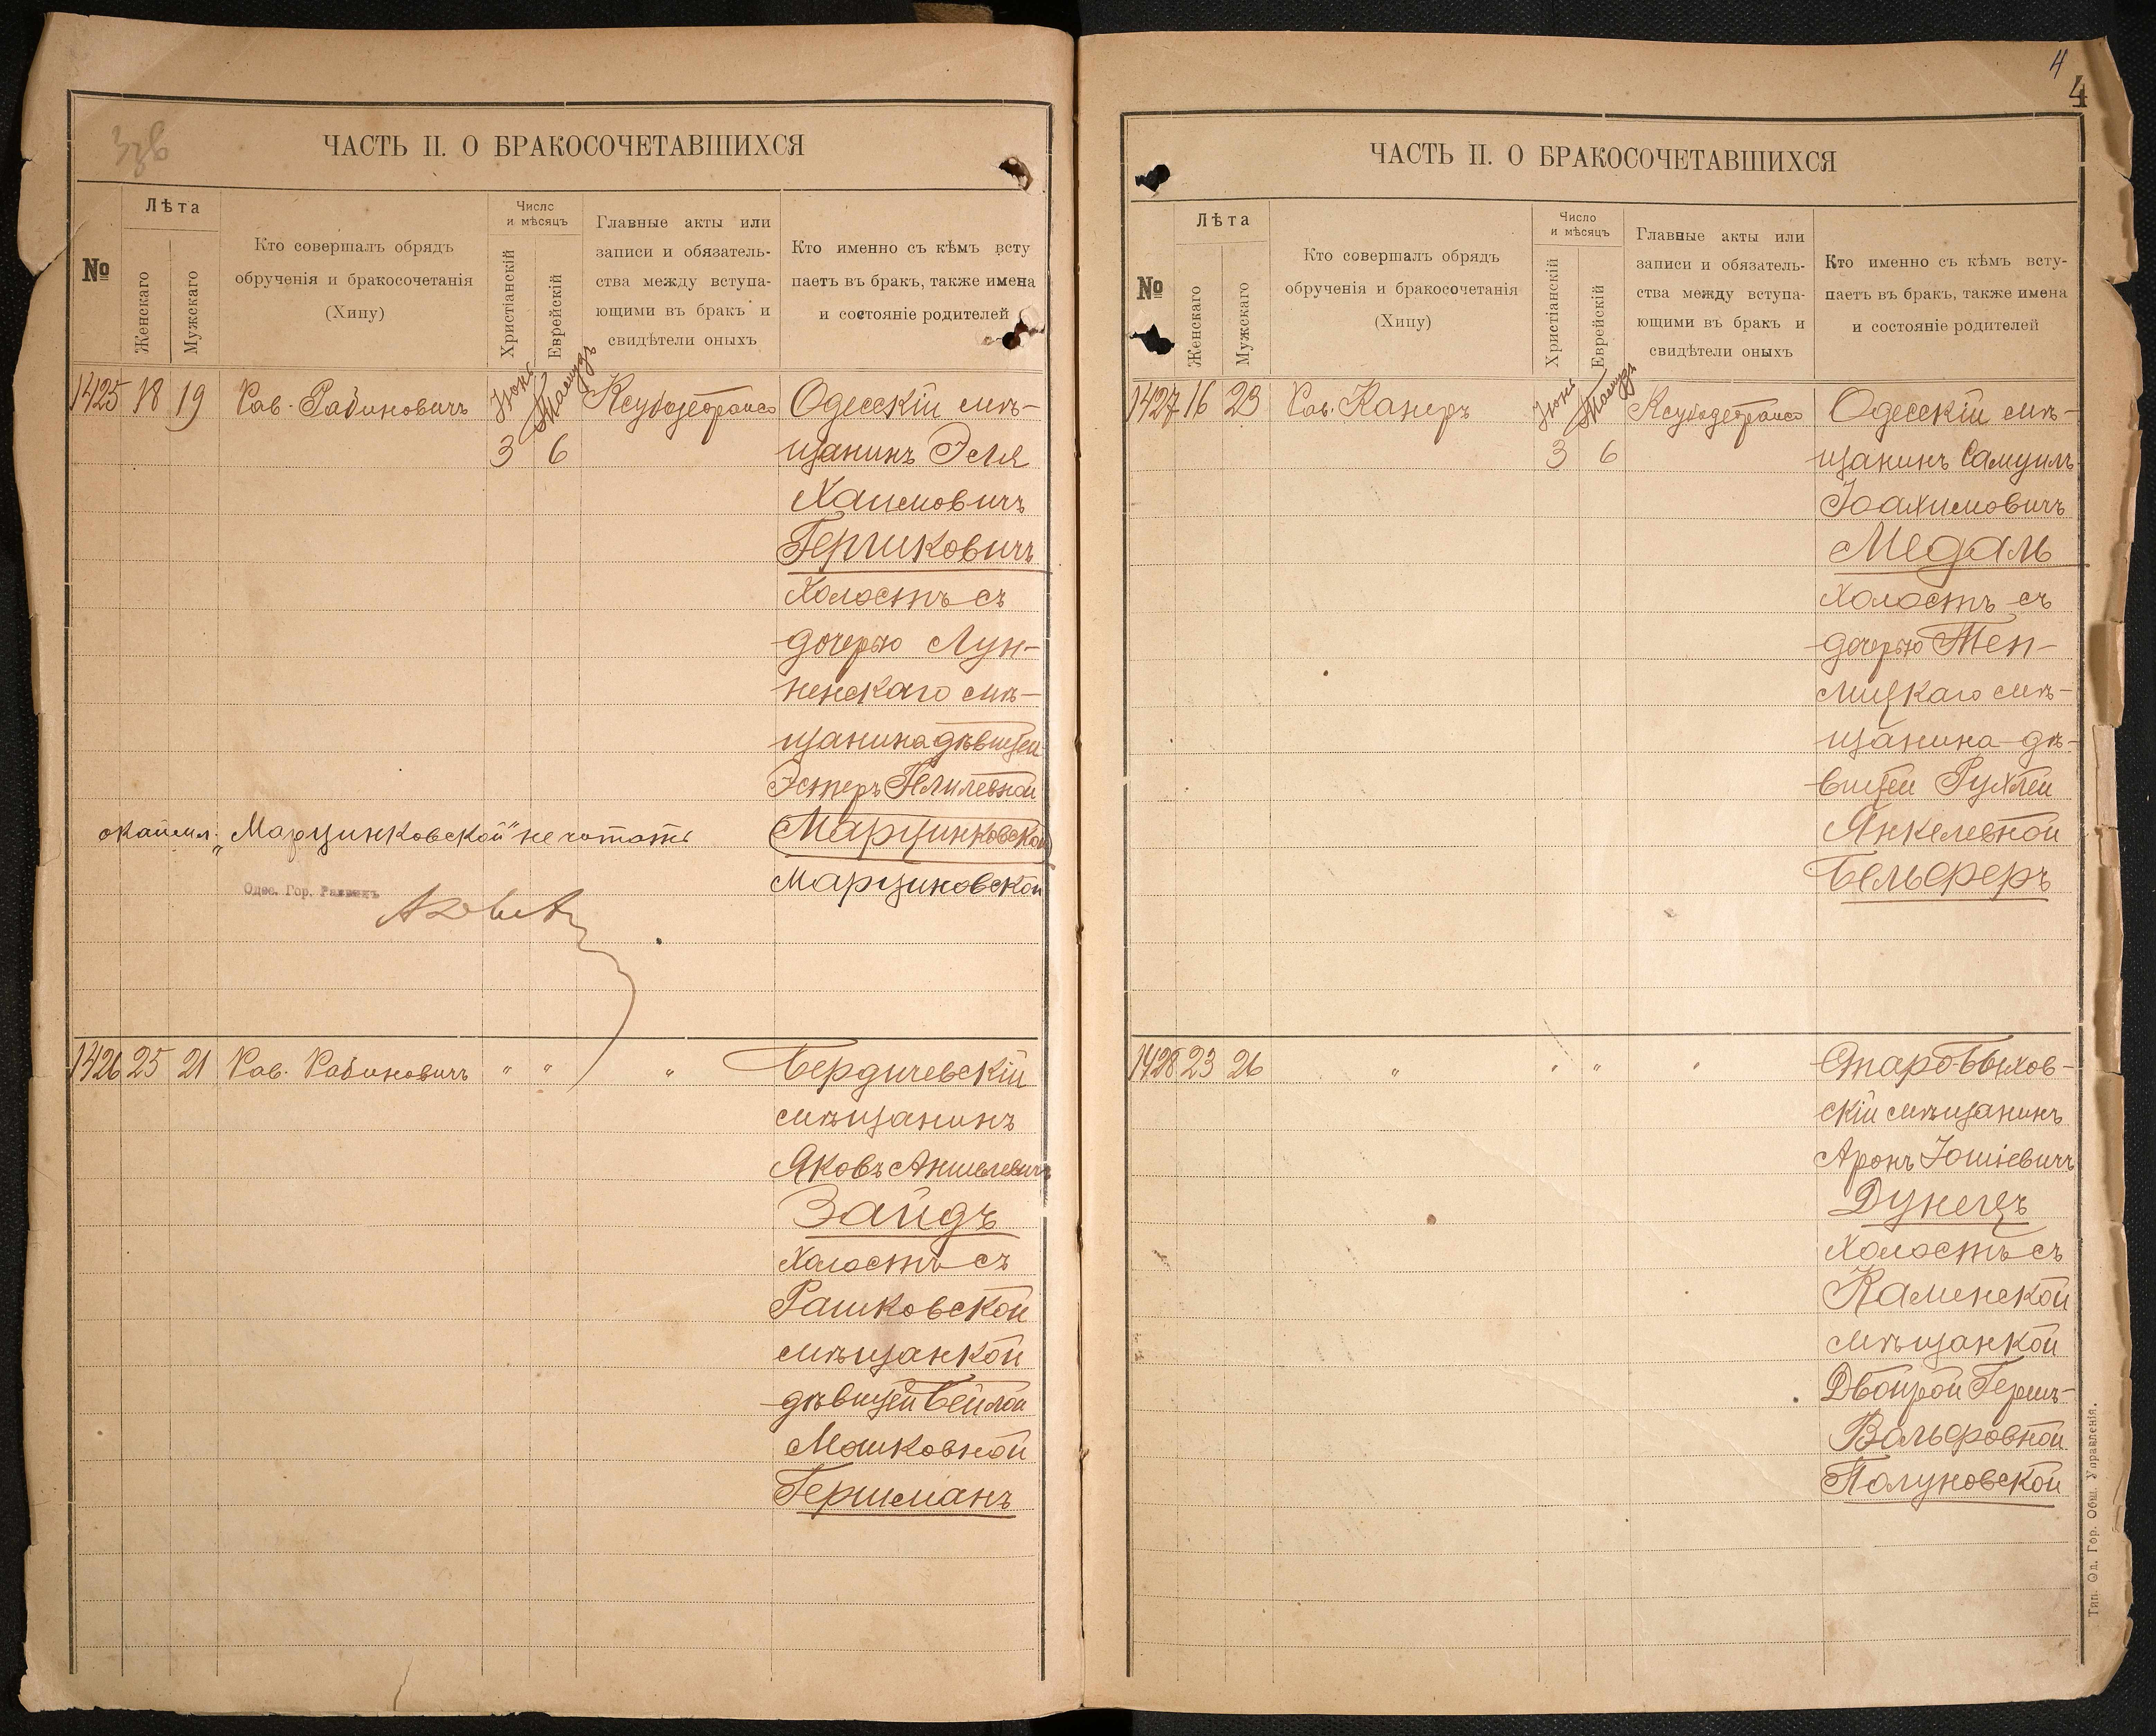 ЧАСТЬ II. О БРАКОСОЧЕТАВШИХСЯ
№
Лѣта
Женскаго
Мужскаго
Кто совершалъ обрядъ
обрученія и бракосочетанія
(Хипу)
Число
и мѣсяцъ
Христіанскій
Еврейскій
Главные акты или
записи и обязатель-
ства между вступа-
ющими въ бракъ и
свидѣтели оныхъ
Кто именно съ кѣмъ всту
паетъ въ бракъ, также имена
и состояніе родителей
1425 18 19 Рав. Рабиновичъ Іюнь Тамузъ Одесскій мѣ-
3 6 щанинъ Эля
Хаимовичъ
Гершковичъ
холостъ съ
дочерью Лун-
ненскаго мѣ-
щанина дѣвицей
Эстеръ
окаймл. „Марцинковской" не читать Марцинковской
Марциновской
Одес. Гор. Раввинъ
1426 25 21 Рав. Рабиновичъ " " " Бердичевскій
мѣщанинъ
Яковъ Аншелевичъ
Зайдъ
холостъ съ
Рашковской
мѣщанкой
дѣвицей Бейлой
Мошковной
Гершманъ
4
4
ЧАСТЬ II. О БРАКОСОЧЕТАВШИХСЯ
№
Лѣта
Женскаго
Мужскаго
Кто совершалъ обрядъ
обрученія и бракосочетанія
(Хипу)
Число
и мѣсяцъ
Христіанскій
Еврейскій
Главные акты или
записи и обязатель-
ства между вступа-
ющими въ бракъ и
свидѣтели оныхъ
Кто именно съ кѣмъ всту-
паетъ въ бракъ, также имена
и состояніе родителей
1427 16 23 Рав. Канеръ Іюнь Тамузъ Одесскій мѣ-
3 6 щанинъ Самуилъ
Іоахимовичъ
Медаль
холостъ съ
дочерью Теп-
лицкаго мѣ-
щанина дѣ-
вицей Рухлей
Янкелевной
Бельферъ
1428 23 26 " " " " Старо-Быхов-
скій мѣщанинъ
Аронъ Іошіевичъ
Дунецъ
холостъ съ
Каменской
мѣщанкой
Двойрой Гершъ-
Вольфовной
Полуновской
Тип. Од. Гор. Общ. Управленія.